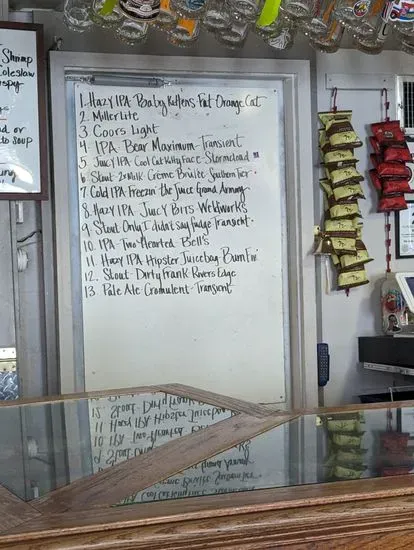 Shrimp
Coleslaw
to soup
1. Hazy IPA Baby Kittens Fat Orange Cat
2. Miller Lite
3 Coors Light
4 IPA Bear Maximum Transient
5 Juicy IPA Cool Cat Kitty Face Stormcloud
6 Stout 2x Milk Crème Brûlée Southern Tier
7 Cold IPA Freezin' the Juice Grand Armory
8 Hazy IPA Juicy Bits Weldwerks
9 Stout Only I Didn't say fudge Transient
10 IPA Two Hearted Bell's
11 Hazy IPA Hipster Juicebag Burn Em'
12. Stout Dirty Frank Rivers Edge
13 Pale Ale Cromulent Transient